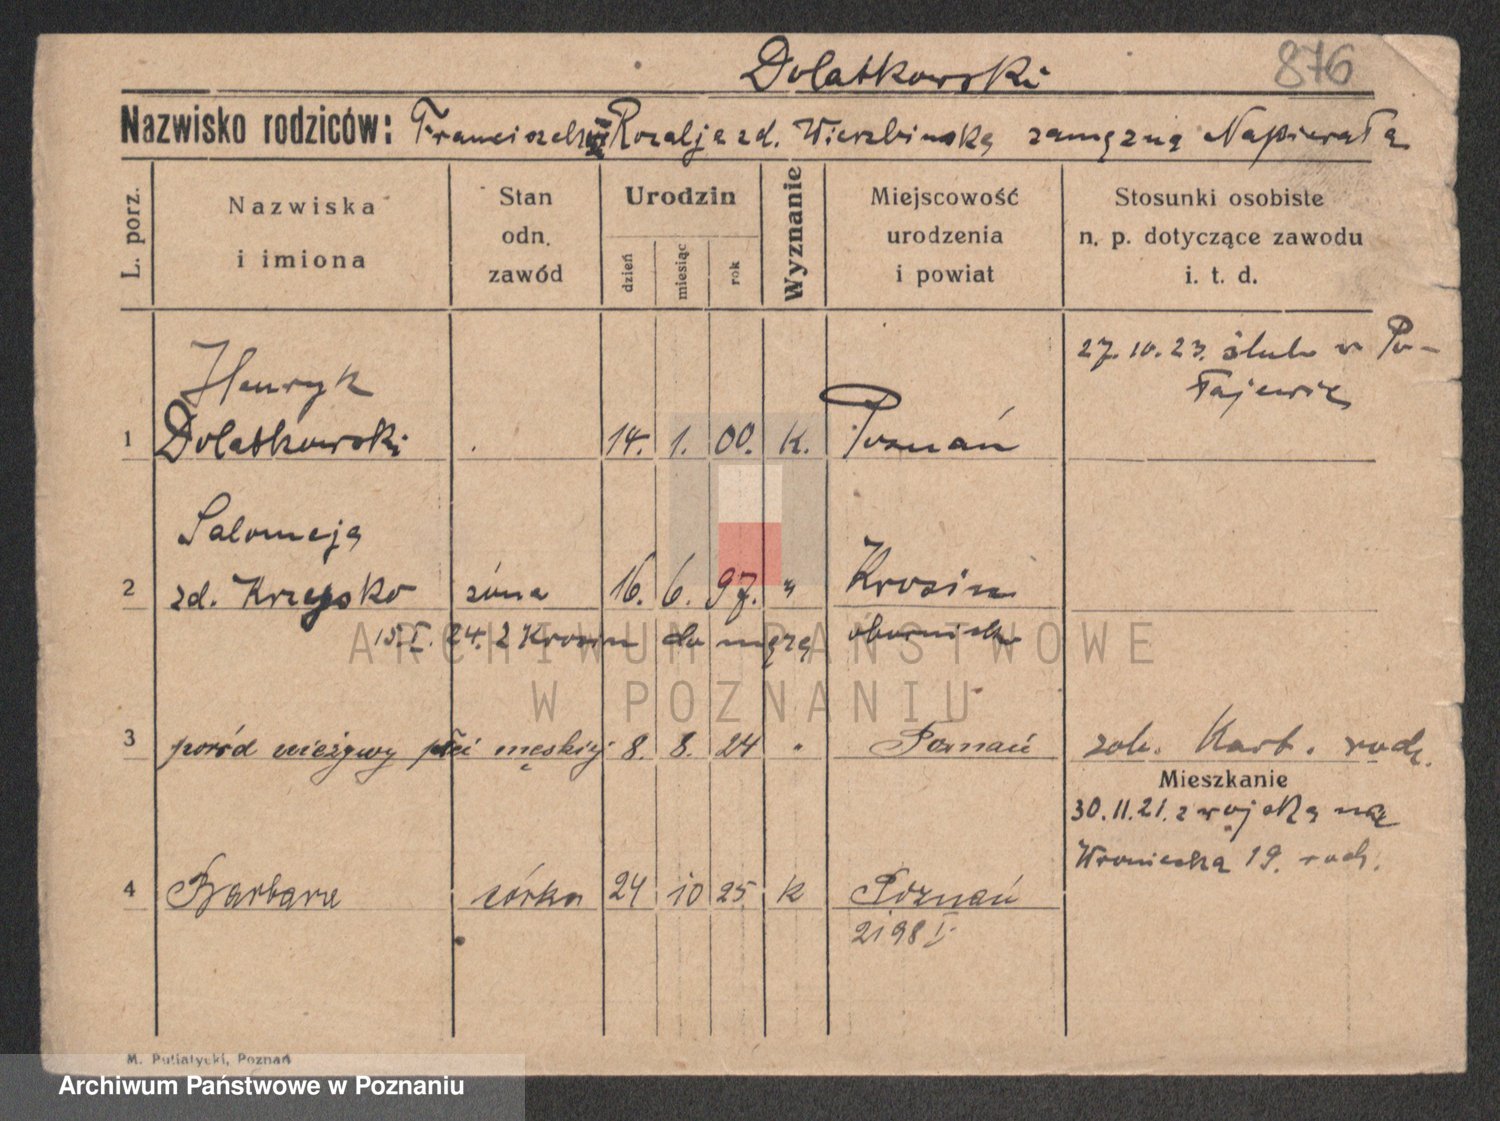 Dolatkowski
876
Nazwisko rodziców: Franciszek Rozalja zd. Wierzbinska zamężna Napierała
L. porz.
Nazwiska i imiona
Stan odn. zawód
Urodzin
dzień
miesiąc
rok
Wyznanie
Miejscowość urodzenia i powiat
Stosunki osobiste n. p. dotyczące zawodu i. t. d.
27.10.23. ślub w Po-
łajewie
Henryk
1 Dolatkowski 14. 1. 00. K. Poznań
Salomeja
2 zd. Krzysko żona 16. 6. 97. " Krosin
15.I.24. z Krosin do męża obornicki
3 poród nieżywy płci męskiej 8. 8. 24 " Poznań zob. Kart. rodz.
Mieszkanie
30.11.21. z wojska na
Wroniecka 19. rodz.
4 Barbara córka 24 10 25 k Poznań
2198 I
M. Putiatycki, Poznań
ARCHIWUM PAŃSTWOWE
W POZNANIU
Archiwum Państwowe w Poznaniu